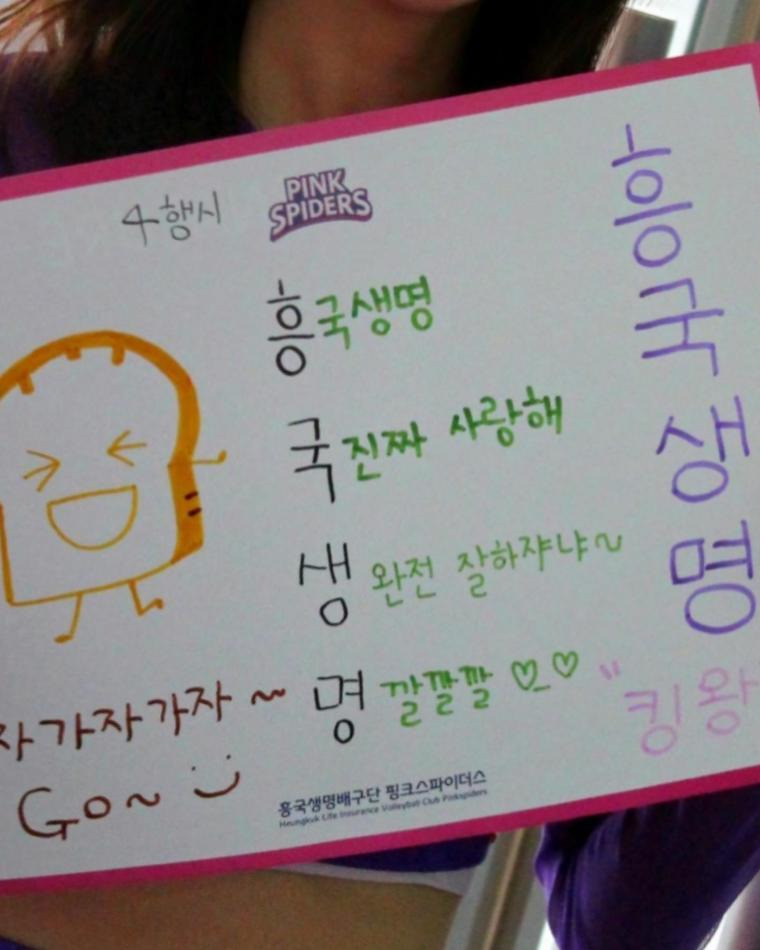 4행시
PINK
SPIDERS
흥국생명
흥국생명
국진짜 사랑해
생 완전 잘하쟈냐~
명 깔깔깔 ♡_♡
"킹왕
자가자가자~
Go~
흥국생명배구단 핑크스파이더스
Heungkuk Life Insurance Volleyball Club Pinkspiders